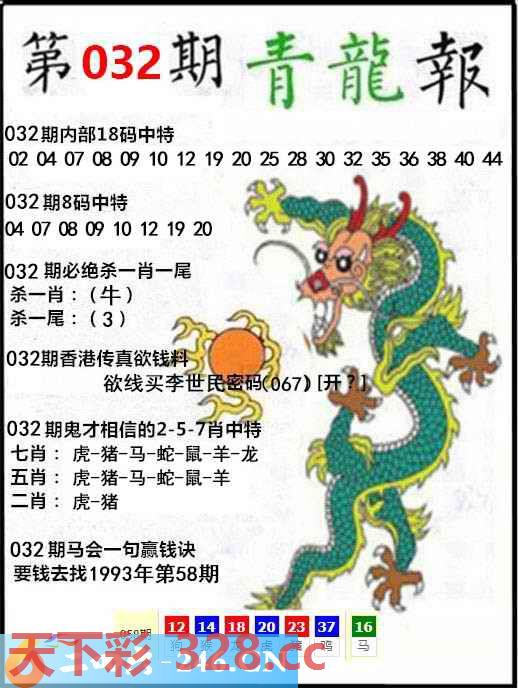 第032期青龍報
032期内部18码中特
02 04 07 08 09 10 12 19 20 25 28 30 32 35 36 38 40 44
032期8码中特
04 07 08 09 10 12 19 20
032期必绝杀一肖一尾
杀一肖：（牛）
杀一尾：（3）
032期香港传真欲钱料
欲线买李世民密码(067)[开？]
032期鬼才相信的2-5-7肖中特
七肖：虎-猪-马-蛇-鼠-羊-龙
五肖：虎-猪-马-蛇-鼠-羊
二肖：虎-猪
032期马会一句赢钱诀
要钱去找1993年第58期
12 14 18 20 23 37 16
狗 猴 鸡 马
天下彩-328.cc